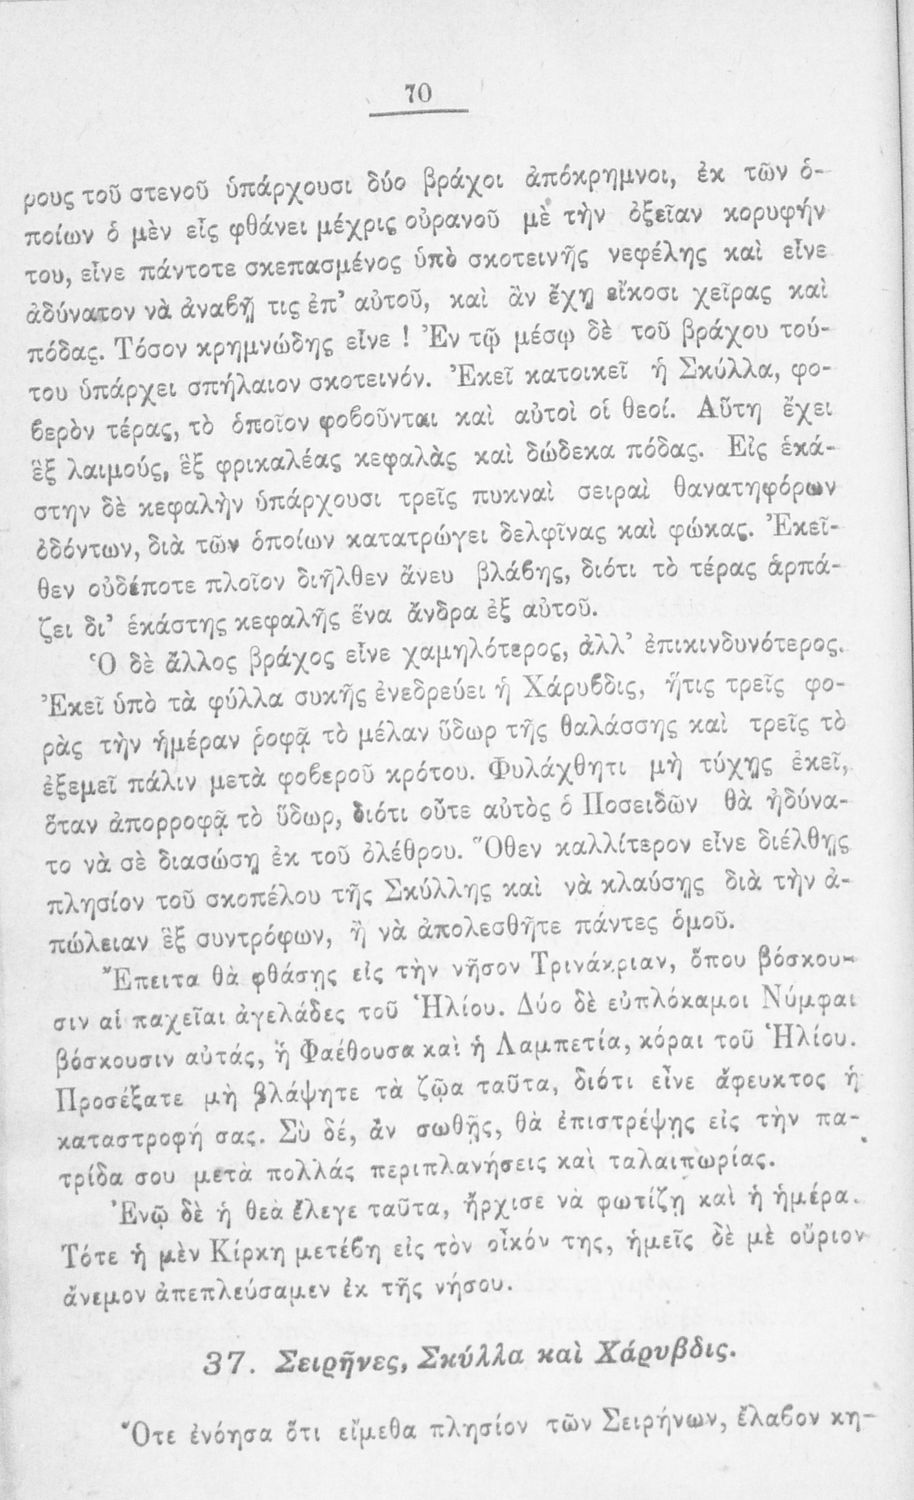 70
ρους τοῦ στενοῦ ὑπάρχουσι δύο βράχοι ἀπόκρημνοι, ἐκ τῶν ὁ-
ποίων ὁ μὲν εἷς φθάνει μέχρις οὐρανοῦ μὲ τὴν ὀξεῖαν κορυφήν
του, εἶνε πάντοτε σκεπασμένος ὑπὸ σκοτεινῆς νεφέλης καὶ εἶνε
ἀδύνατον νὰ ἀναϐῇ τις ἐπ’ αὐτοῦ, καὶ ἂν ἔχῃ εἴκοσι χεῖρας καὶ
πόδας. Τόσον κρημνώδης εἶνε ! Ἐν τῷ μέσῳ δὲ τοῦ βράχου τού-
του ὑπάρχει σπήλαιον σκοτεινόν. Ἐκεῖ κατοικεῖ ἡ Σκύλλα, φο-
ϐερὸν τέρας, τὸ ὁποῖον φοϐοῦνται καὶ αὐτοὶ οἱ θεοί. Αὕτη ἔχει
ἓξ λαιμούς, ἓξ φρικαλέας κεφαλὰς καὶ δώδεκα πόδας. Εἰς ἑκά-
στην δὲ κεφαλὴν ὑπάρχουσι τρεῖς πυκναὶ σειραὶ θανατηφόρων
ὀδόντων, διὰ τῶν ὁποίων κατατρώγει δελφῖνας καὶ φώκας. Ἐκεῖ-
θεν οὐδέποτε πλοῖον διῆλθεν ἄνευ βλάϐης, διότι τὸ τέρας ἁρπά-
ζει δι’ ἑκάστης κεφαλῆς ἕνα ἄνδρα ἐξ αὐτοῦ.
Ὁ δὲ ἄλλος βράχος εἶνε χαμηλότερος, ἀλλ’ ἐπικινδυνότερος.
Ἐκεῖ ὑπὸ τὰ φύλλα συκῆς ἐνεδρεύει ἡ Χάρυϐδις, ἥτις τρεῖς φο-
ρὰς τὴν ἡμέραν ῥοφᾷ τὸ μέλαν ὕδωρ τῆς θαλάσσης καὶ τρεῖς τὸ
ἐξεμεῖ πάλιν μετὰ φοϐεροῦ κρότου. Φυλάχθητι μὴ τύχῃς ἐκεῖ,
ὅταν ἀπορροφᾷ τὸ ὕδωρ, διότι οὔτε αὐτὸς ὁ Ποσειδῶν θὰ ἠδύνα-
το νὰ σὲ διασώσῃ ἐκ τοῦ ὀλέθρου. Ὅθεν καλλίτερον εἶνε διέλθῃς
πλησίον τοῦ σκοπέλου τῆς Σκύλλης καὶ νὰ κλαύσῃς διὰ τὴν ἀ-
πώλειαν ἓξ συντρόφων, ἢ νὰ ἀπολεσθῆτε πάντες ὁμοῦ.
Ἔπειτα θὰ φθάσῃς εἰς τὴν νῆσον Τρινάκριαν, ὅπου βόσκου-
σιν αἱ παχεῖαι ἀγελάδες τοῦ Ἡλίου. Δύο δὲ εὐπλόκαμοι Νύμφαι
βόσκουσιν αὐτάς, ἡ Φαέθουσα καὶ ἡ Λαμπετία, κόραι τοῦ Ἡλίου.
Προσέξατε μὴ βλάψητε τὰ ζῷα ταῦτα, διότι εἶνε ἄφευκτος ἡ
καταστροφή σας. Σὺ δέ, ἂν σωθῇς, θὰ ἐπιστρέψῃς εἰς τὴν πα-
τρίδα σου μετὰ πολλάς περιπλανήσεις καὶ ταλαιπωρίας.
Ἐνῷ δὲ ἡ θεὰ ἔλεγε ταῦτα, ἤρχισε νὰ φωτίζῃ καὶ ἡ ἡμέρα.
Τότε ἡ μὲν Κίρκη μετέϐη εἰς τὸν οἶκόν της, ἡμεῖς δὲ μὲ οὔριον
ἄνεμον ἀπεπλεύσαμεν ἐκ τῆς νήσου.
37. Σειρῆνες, Σκύλλα καὶ Χάρυβδις.
Ὅτε ἐνόησα ὅτι εἴμεθα πλησίον τῶν Σειρήνων, ἔλαϐον κη-